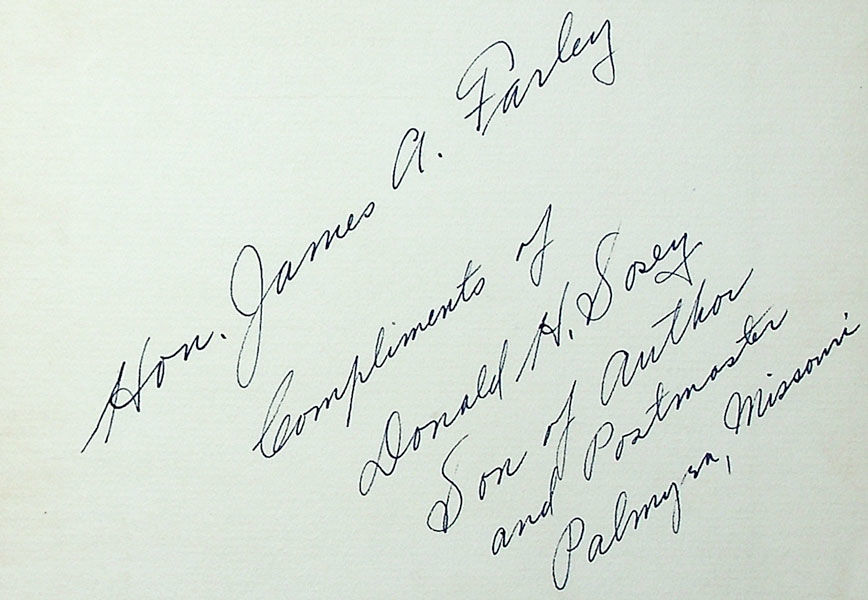 Hon. James A. Farley
Compliments of
Donald H. Sosey
Son of Author
and Postmaster
Palmyra, Missouri